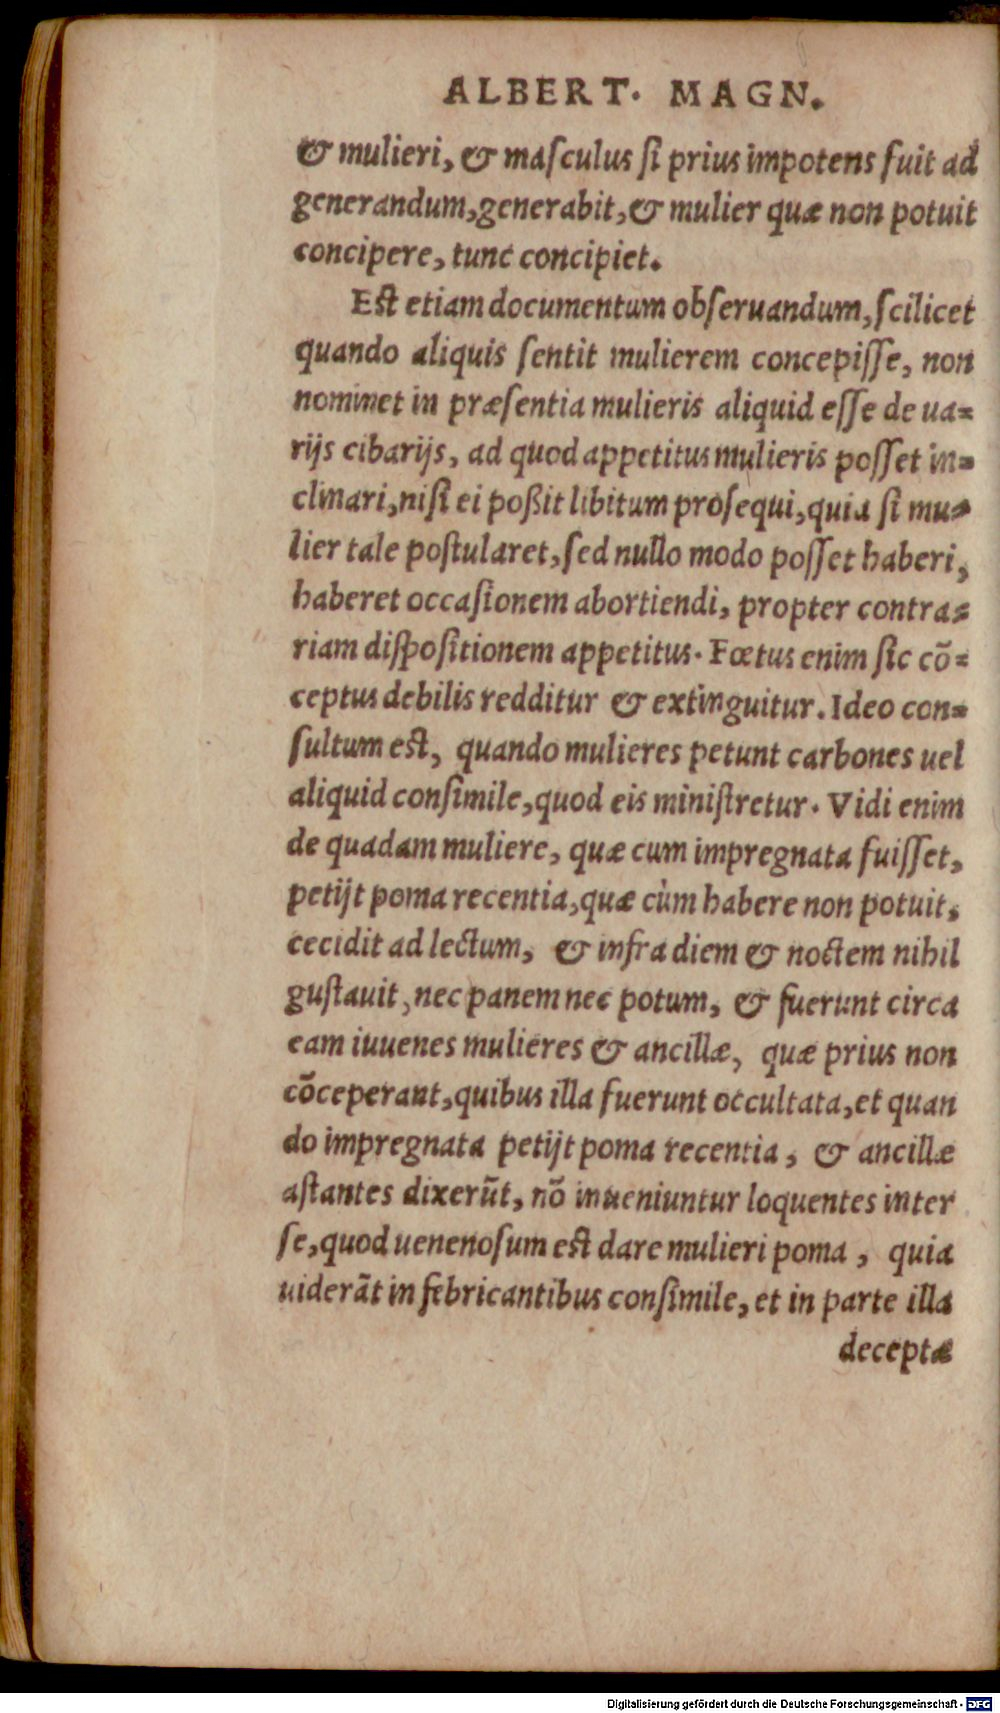 ALBERT. MAGN.
& mulieri, & maſculus ſi prius impotens fuit ad
generandum,generabit,& mulier quæ non potuit
concipere, tunc concipiet.
Eſt etiam documentum obſeruandum,ſcilicet
quando aliquis ſentit mulierem concepiſſe, non
nominet in præſentia mulieris aliquid eſſe de ua=
rijs cibarijs, ad quod appetitus mulieris poſſet in=
clinari,niſi ei poßit libitum proſequi,quia ſi mu=
lier tale poſtularet,ſed nullo modo poſſet haberi,
haberet occaſionem abortiendi, propter contra=
riam diſpoſitionem appetitus. Fœtus enim ſic cõ=
ceptus debilis redditur & extinguitur. Ideo con=
ſultum eſt, quando mulieres petunt carbones uel
aliquid conſimile,quod eis miniſtretur. Vidi enim
de quadam muliere, quæ cum impregnata fuiſſet,
petijt poma recentia,quæ cùm habere non potuit,
cecidit ad lectum, & infra diem & noctem nihil
guſtauit, nec panem nec potum, & fuerunt circa
eam iuuenes mulieres & ancillæ, quæ prius non
cõceperant,quibus illa fuerunt occultata,et quan
do impregnata petijt poma recentia, & ancillæ
aſtantes dixerũt, nõ inueniuntur loquentes inter
ſe,quod uenenoſum eſt dare mulieri poma, quia
uiderãt in febricantibus conſimile, et in parte illa
deceptæ
Digitalisierung gefördert durch die Deutsche Forschungsgemeinschaft - DFG